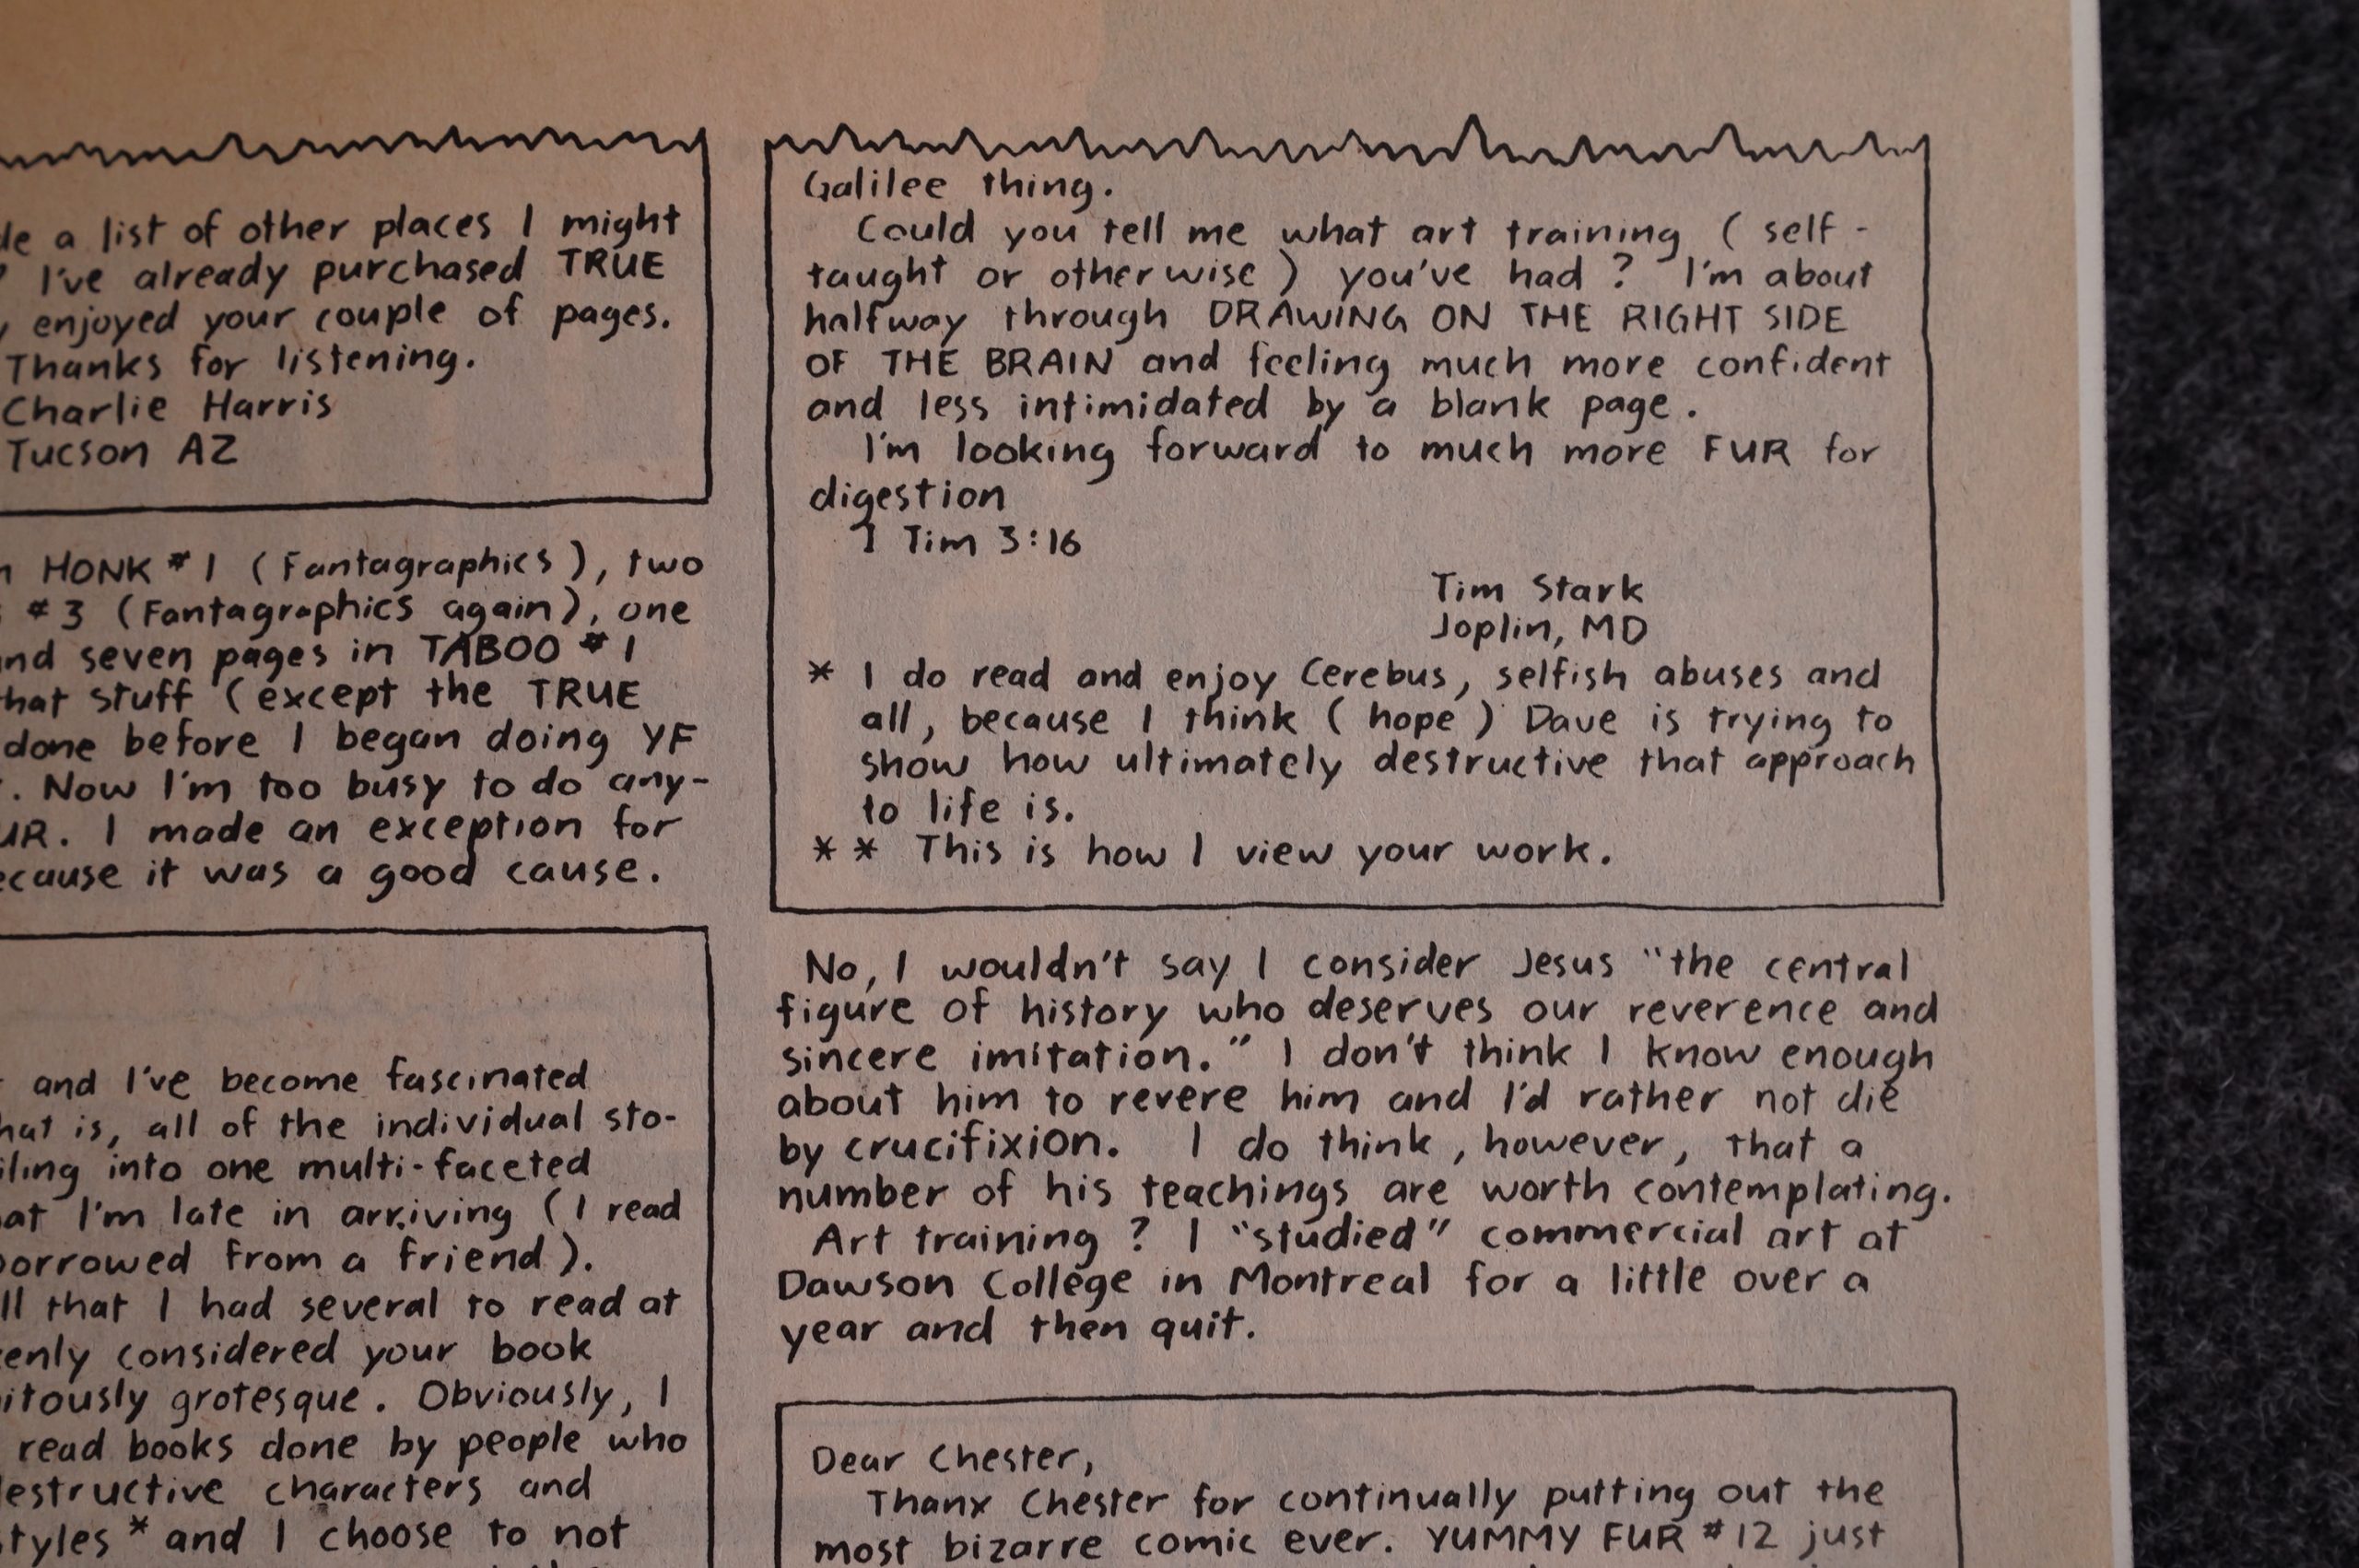 a list of other places I might
I've already purchased TRUE
enjoyed your couple of pages.
Thanks for listening.
Charlie Harris
Tucson AZ
HONK #1 (Fantagraphics), two
#3 (Fantagraphics again), one
and seven pages in TABOO #1
that stuff (except the TRUE
done before I began doing YF
. Now I'm too busy to do any-
UR. I made an exception for
ecause it was a good cause.
and I've become fascinated
hat is, all of the individual sto-
iling into one multi-faceted
at I'm late in arriving (I read
borrowed from a friend).
ll that I had several to read at
enly considered your book
itously grotesque. Obviously, I
read books done by people who
destructive characters and
styles * and I choose to not
Galilee thing.
Could you tell me what art training (self-
taught or otherwise) you've had? I'm about
halfway through DRAWING ON THE RIGHT SIDE
OF THE BRAIN and feeling much more confident
and less intimidated by a blank page.
I'm looking forward to much more FUR for
digestion
1 Tim 3:16
Tim Stark
Joplin, MO
* I do read and enjoy Cerebus, selfish abuses and
all, because I think (hope) Dave is trying to
show how ultimately destructive that approach
to life is.
** This is how I view your work.
No, I wouldn't say I consider Jesus "the central
figure of history who deserves our reverence and
sincere imitation." I don't think I know enough
about him to revere him and I'd rather not die
by crucifixion. I do think, however, that a
number of his teachings are worth contemplating.
Art training? I "studied" commercial art at
Dawson College in Montreal for a little over a
year and then quit.
Dear Chester,
Thanx Chester for continually putting out the
most bizarre comic ever. YUMMY FUR #12 just